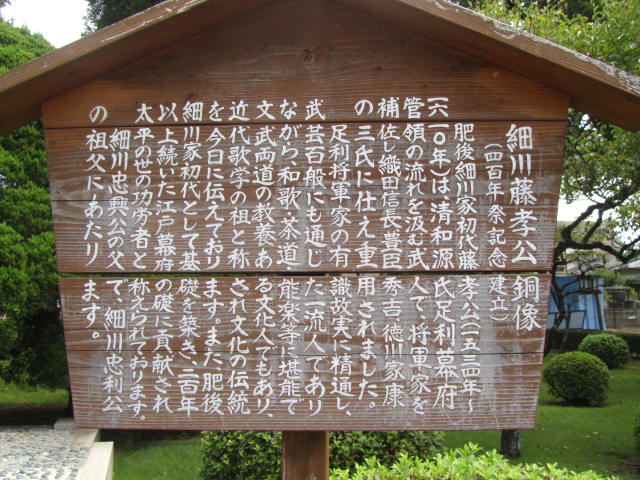 細川藤孝公銅像
(四百年祭記念建立)
肥後細川家初代藤孝公(一五三四～
一六一〇年)は清和源氏足利幕府
管領の流れを汲む武人で、将軍家を
補佐し織田信長豊臣秀吉、徳川家康
の三氏に仕え重用されました。
足利将軍家の有識故実に精通し、
武芸百般にも通じた一流人であり
ながら和歌・茶道・能楽等に堪能で
文武両道の教養ある文化人でもあり、
近代歌学の祖と称され文化の伝統
を今日に伝えております。また、肥後
細川家初代として基礎を築き、二百年
以上続いた江戸幕府の礎に貢献され
太平の世の功労者と称えられております。
細川忠興公の父で、細川忠利公
の祖父にあたります。